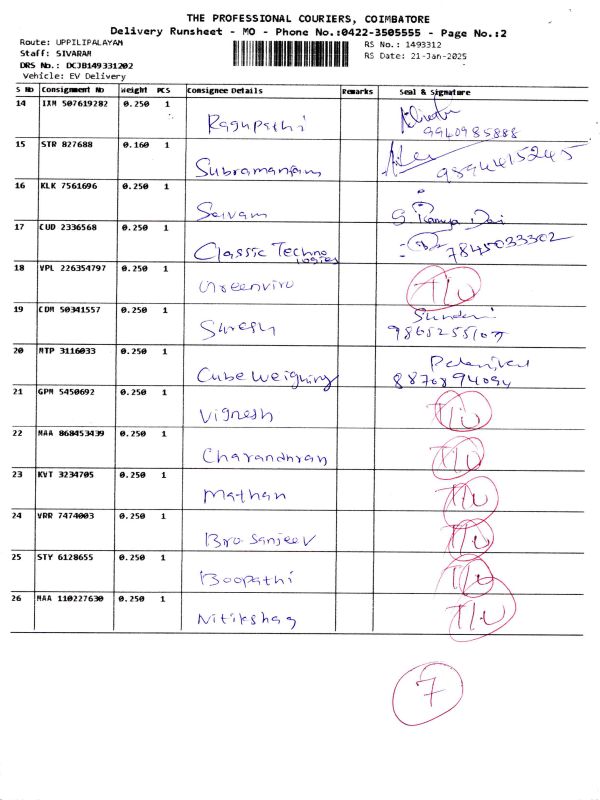 THE PROFESSIONAL COURIERS, COIMBATORE
Delivery Runsheet - MO - Phone No.:0422-3505555 - Page No.:2
Route: UPPILIPALAYAM
Staff: SIVARAM
DRS No.: DCJB149331202
Vehicle: EV Delivery
RS No.: 1493312
RS Date: 21-Jan-2025
S No Consignment No Weight PCS Consignee Details Remarks Seal & Signature
14 IXM 507619282 0.250 1
Ragupathi
9940985888
15 STR 827688 0.160 1
Subramaniam 9894415245
16 KLK 7561696 0.250 1
Selvam S. Ramya Devi
17 CUD 2336568 0.250 1
Classic Techno 7845033302
logies
18 VPL 226354797 0.250 1
Greenviro T/U
19 CDM 50341557 0.250 1 Sundari
Suresh
20 MTP 3116033 0.250 1 Palanivel
Cube Weighing 8870894094
21 GPM 5450692 0.250 1
Vignesh T/U
22 MAA 868453439 0.250 1
Charandhran T/U
23 KVT 3234705 0.250 1
Mathan T/U
24 VRR 7474003 0.250 1
Bro Sanjeev T/U
25 STY 6128655 0.250 1
Boopathi T/U
26 MAA 110227630 0.250 1
Nitikshaa T/U
7